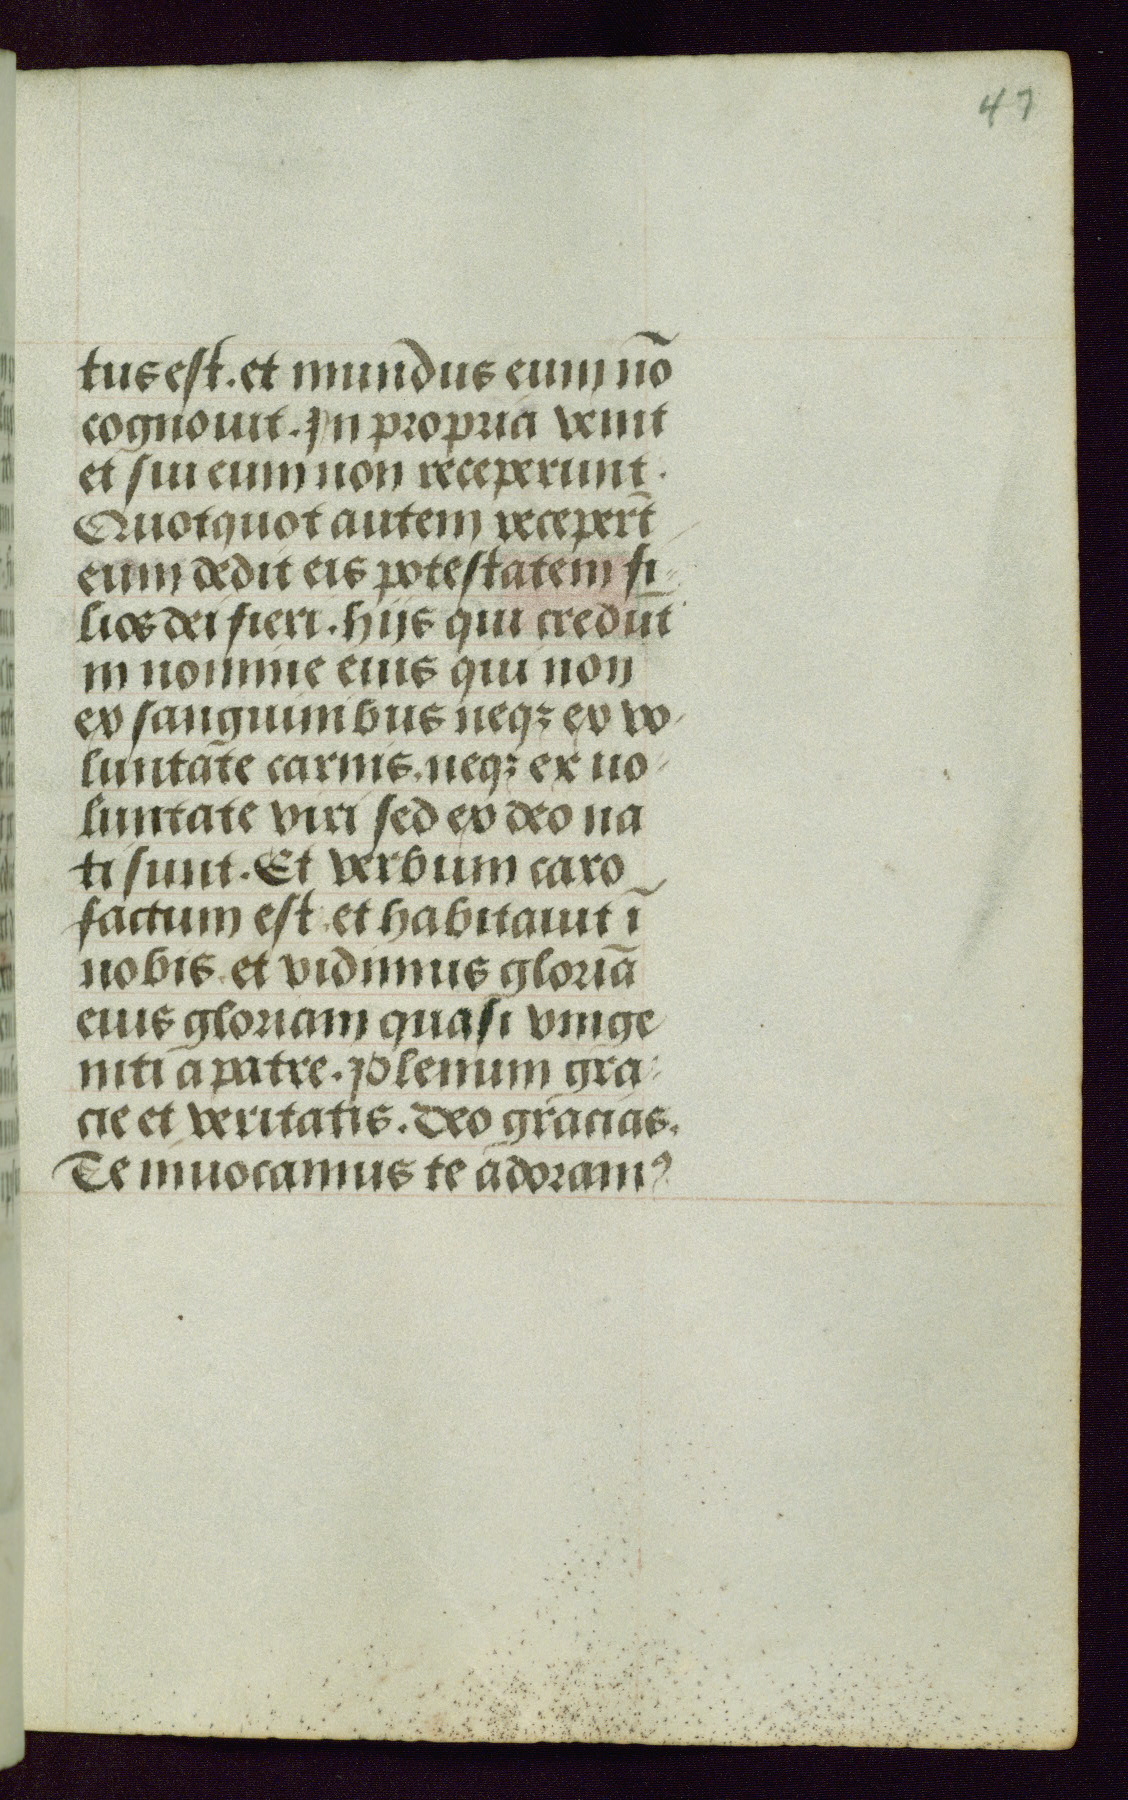 47
tus est. et mundus eum nō
cognouit. In propria venit
et sui eum non receperunt.
Quotquot autem recepert̄
eum dedit eis potestatem fi-
lios dei fieri. hijs qui credūt
in nomine eius qui non
ex sanguinibus neqꝫ ex vo-
luntate carnis. neqꝫ ex uo-
luntate viri sed ex deo na
ti sunt. Et verbum caro
factum est. et habitauit ī
nobis. et vidimus gloriā
eius gloriam quasi vnige
niti a patre. Plenum gra-
cie et veritatis. Deo gracias.
Te inuocamus te adoramꝰ